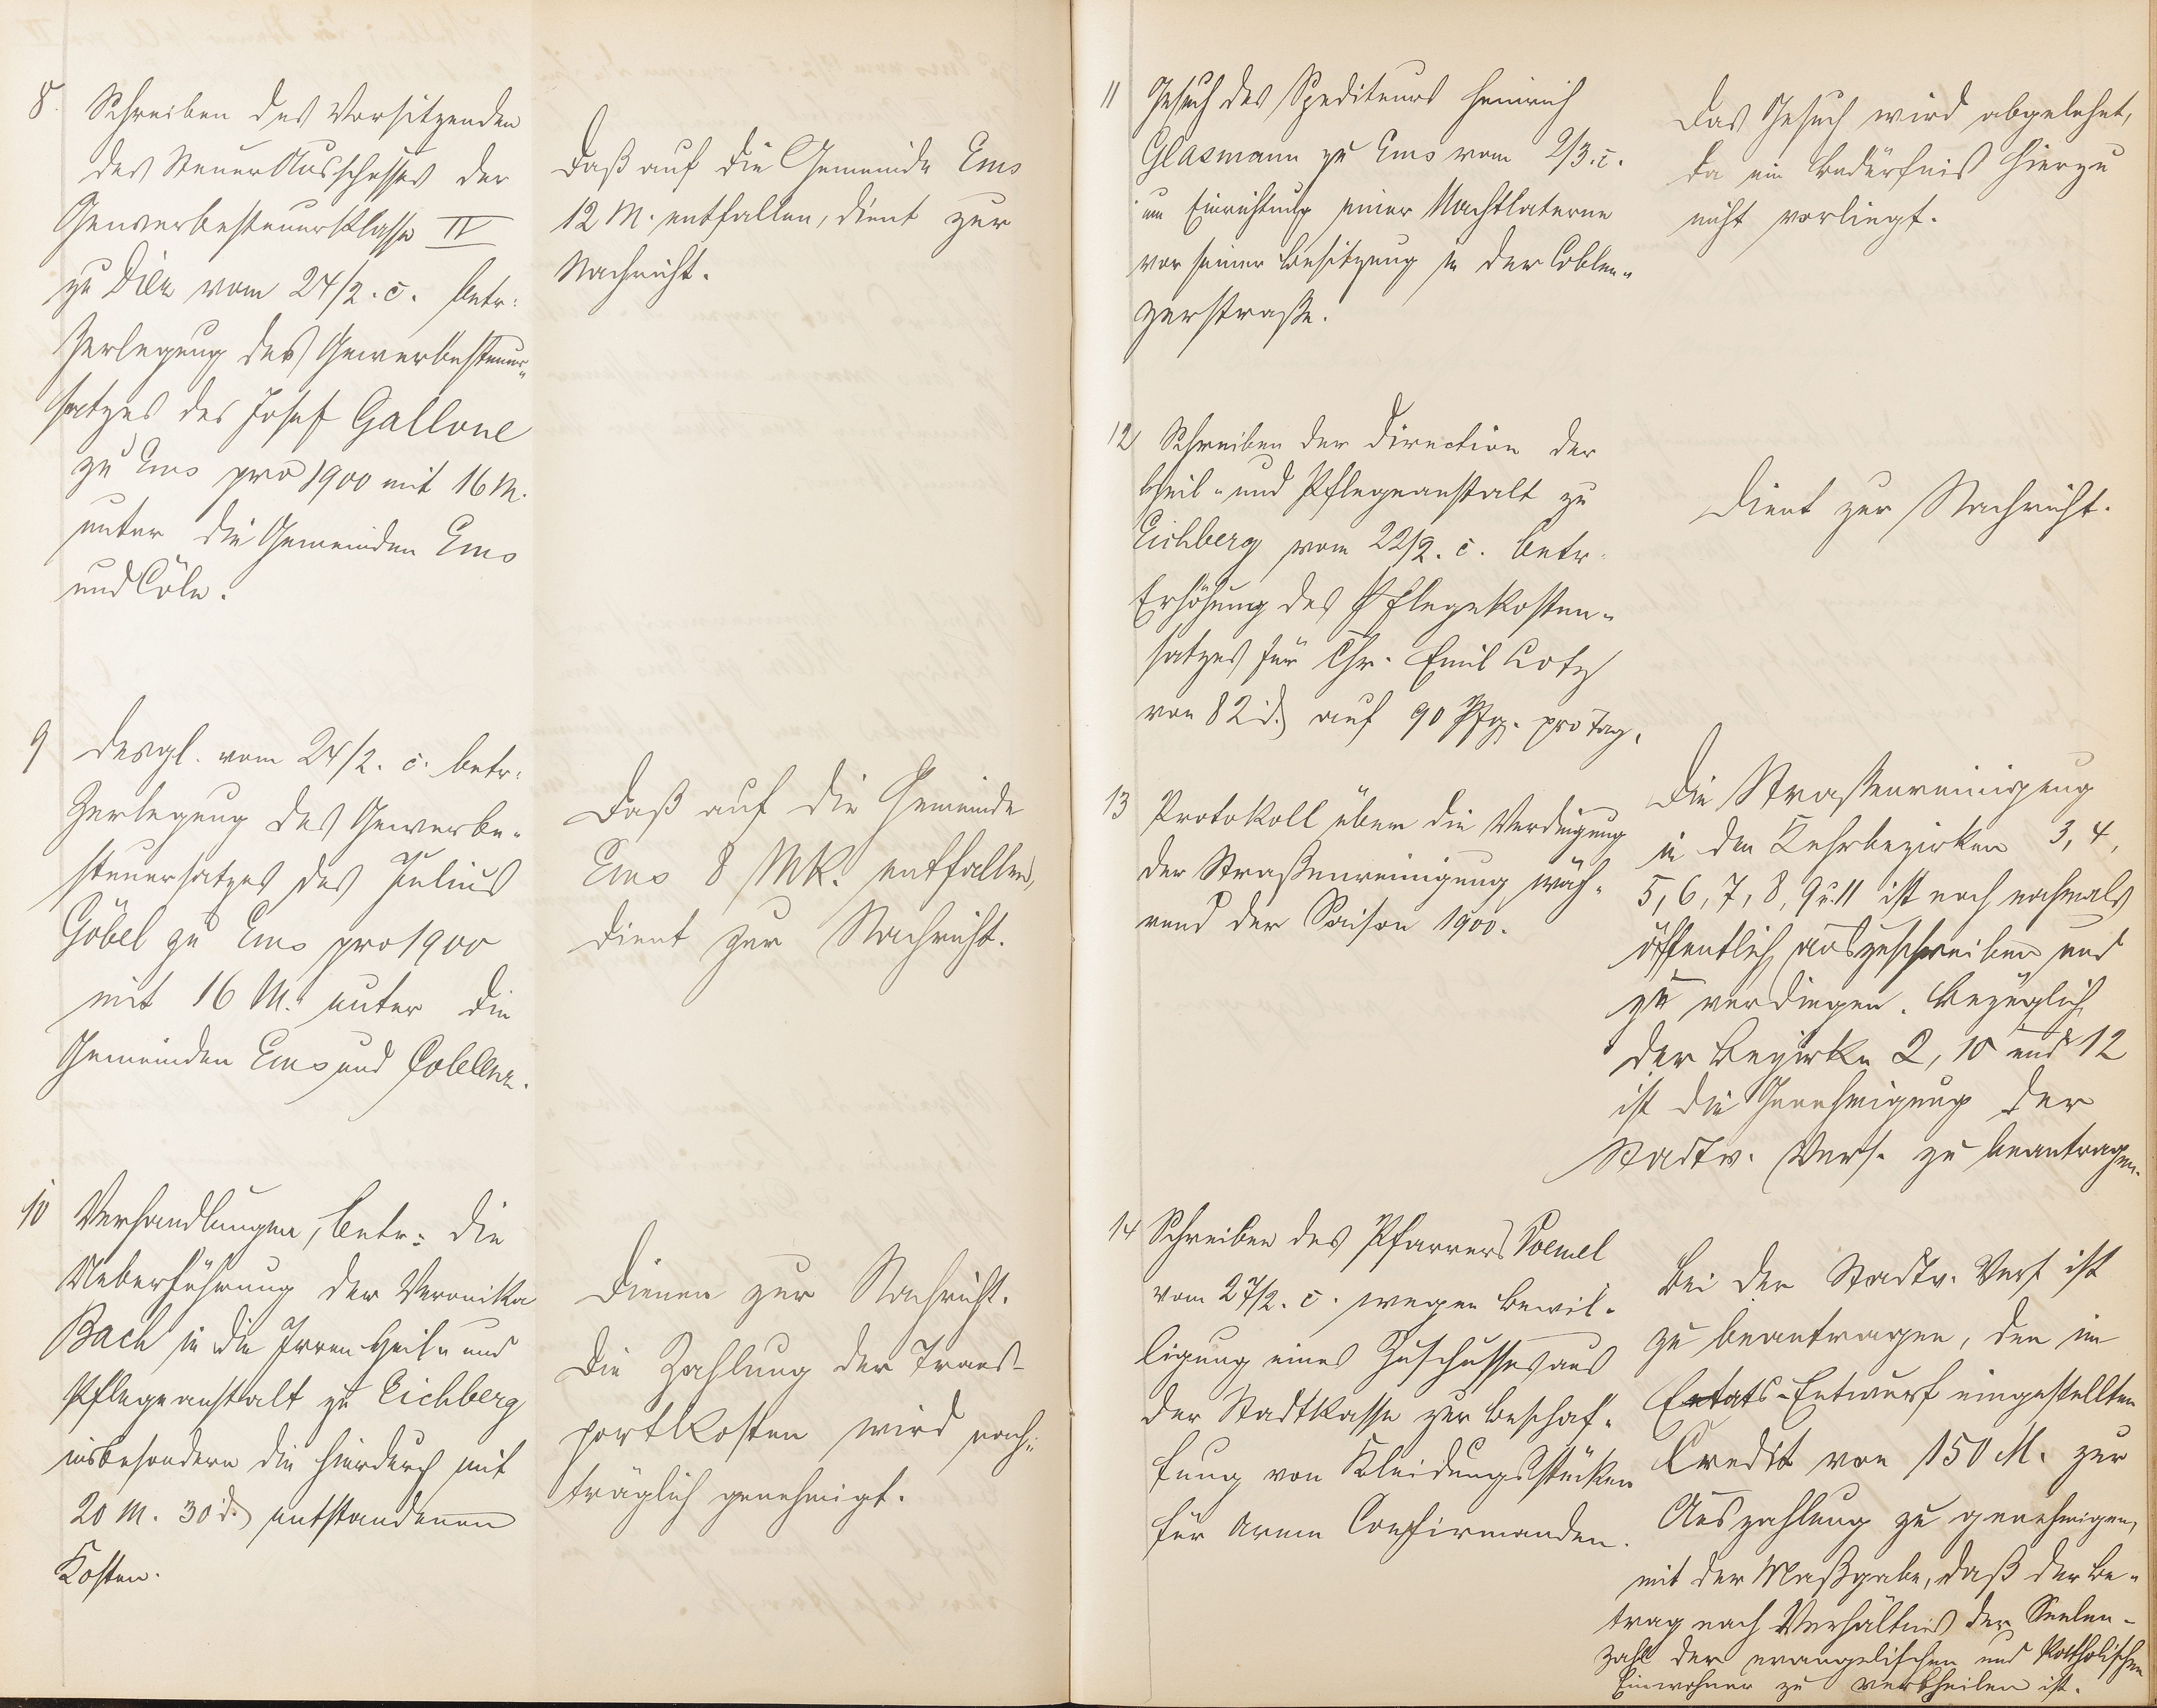 8. Schreiben des Vorsitzenden
des Steuer Ausschusses der
Gewerbesteuerklasse IV
zu Diez vom 24/2. c. betr.
Zerlegung des Gewerbesteuer-
satzes des Josef Gallone
zu Ems pro 1900 mit 16 M.
unter die Gemeinden Ems
und Cöln.
Daß auf die Gemeinde Ems
12 M. entfallen, dient zur
Nachricht.
9 Desgl. vom 24/2. c. betr.
Zerlegung des Gewerbe-
steuersatzes des Julius
Göbel zu Ems pro 1900
mit 16 M. unter die
Gemeinden Ems und Coblenz.
Daß auf die Gemeinde
Ems 8 Mk. entfallen,
dient zur Nachricht.
10 Verhandlungen, betr. die
Ueberführung der Veronika
Bach in die Irren-Heil- und
Pflegeanstalt zu Eichberg
insbesondere die hierdurch mit
20 M. 30 d. entstandenen
Kosten.
Dienen zur Nachricht.
Die Zahlung der Trans-
portkosten wird nach-
träglich genehmigt.
11 Gesuch des Spediteurs Heinrich
Glasmann zu Ems vom 2/3. c.
um Einrichtung einer Nachtlaterne
vor seiner Besitzung in der Coblen-
zerstraße.
Das Gesuch wird abgelehnt,
da ein Bedürfniß hierzu
nicht vorliegt.
12 Schreiben der Direction der
Heil- und Pflegeanstalt zu
Eichberg vom 22/2. c. betr.
Erhöhung des Pflegekosten-
satzes für Chr. Emil Lotz
von 82 d. auf 90 Pfg. pro Tag.
Dient zur Nachricht.
13 Protokoll über die Verdingung
der Straßenreinigung wäh-
rend der Saison 1900.
Die Straßenreinigung
in den Kehrbezirken 3, 4,
5, 6, 7, 8, 9 u. 11 ist noch nochmals
öffentlich auszuschreiben und
zu verdingen. Bezüglich
der Bezirke 2, 10 und 12
ist die Genehmigung der
Stadtv. Vers. zu beantragen.
14 Schreiben des Pfarrers Poemel
vom 27/2. c. wegen Bewil-
ligung eines Zuschusses aus
der Stadtkasse zur Beschaf-
fung von Kleidungsstücken
für arme Confirmanden.
Bei der Stadtv. Vers. ist
zu beantragen, den im
Etats-Entwurf eingestellten
Credit von 150 M. zur
Auszahlung zu genehmigen,
mit der Maßgabe, daß der Be-
trag nach Verhältniß der Seelen-
zahl der evangelischen und katholischen
Einwohner zu vertheilen ist.